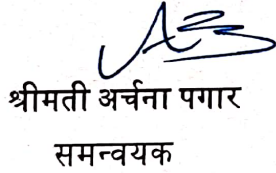 श्रीमती अर्चना पगार
समन्वयक